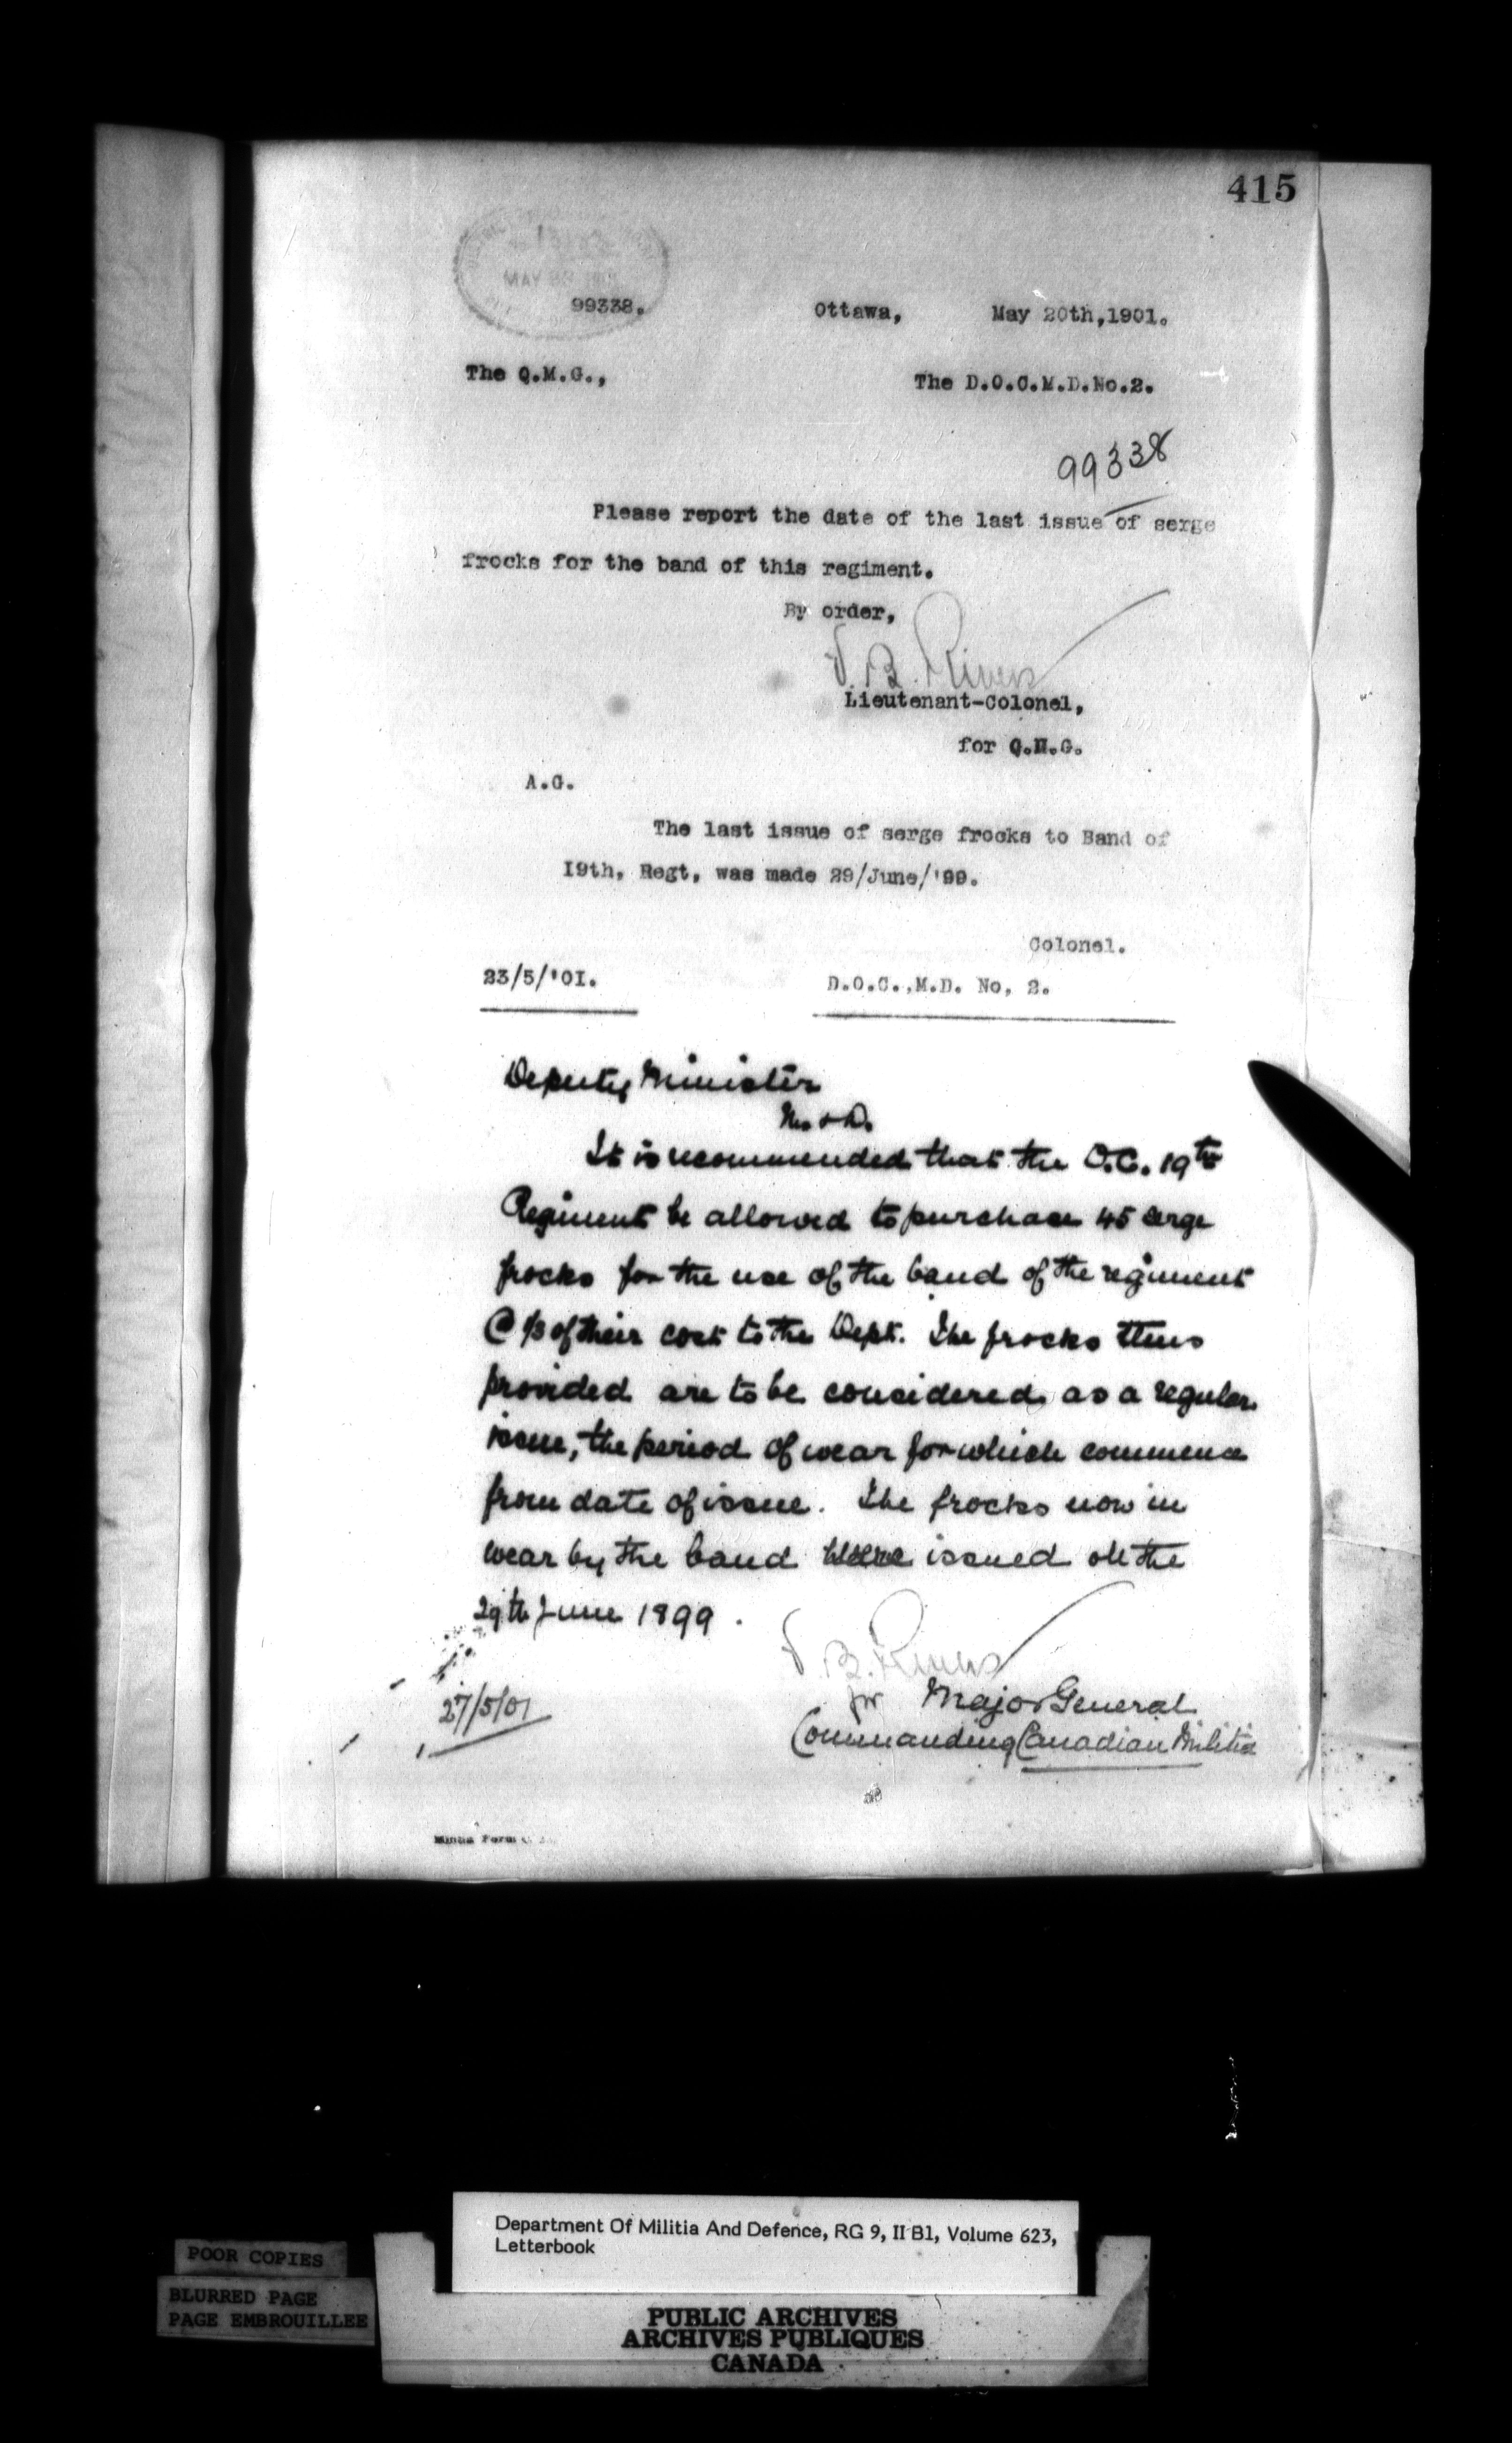 415
MAY
99338. Ottawa, May 20th,1901.
The Q.M.G., The D.O.C.M.D.No.2.
99338
Please report the date of the last issue of serge
frocks for the band of this regiment.
By order,
Lieutenant-Colonel,
for Q.M.G.
A.G.
The last issue of serge frocks to Band of
I9th, Regt, was made 29/June/'99.
Colonel.
23/5/'OI. D.O.C.,M.D. No, 2.
Deputy Minister
M. & D.
It is recommended that the O.C. 19th
Regiment be allowed to purchase 45 serge
frocks for the use of the band of the regiment
@ 1/3 of their cost to the Dept. The frocks thus
provided are to be considered as a regular
issue, the period of wear for which commence
from date of issue. The frocks now in
wear by the band were issued on the
29th June 1899.
27/5/01
for Major General
Commanding Canadian Militia
Militia Form
Department Of Militia And Defence, RG 9, II B1, Volume 623,
Letterbook
POOR COPIES
BLURRED PAGE
PAGE EMBROUILLEE
PUBLIC ARCHIVES
ARCHIVES PUBLIQUES
CANADA